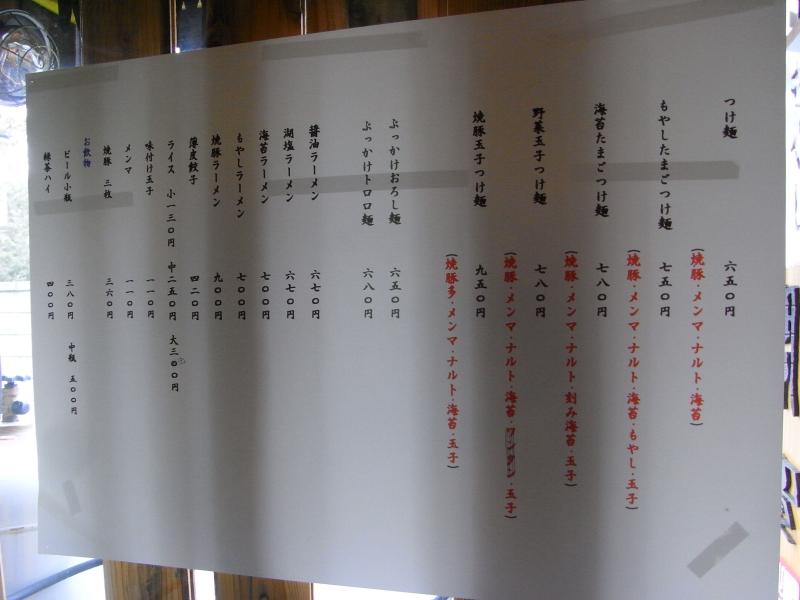 つけ麺　六五〇円
（焼豚・メンマ・ナルト・海苔）
もやしたまごつけ麺　七五〇円
（焼豚・メンマ・ナルト・海苔・もやし・玉子）
海苔たまごつけ麺　七八〇円
（焼豚・メンマ・ナルト・刻み海苔・玉子）
野菜玉子つけ麺　七八〇円
（焼豚・メンマ・ナルト・海苔・ワンタン・玉子）
焼豚玉子つけ麺　九五〇円
（焼豚多・メンマ・ナルト・海苔・玉子）
ぶっかけおろし麺　六五〇円
ぶっかけトロロ麺　六八〇円
醤油ラーメン　六七〇円
湖塩ラーメン　六七〇円
海苔ラーメン　七〇〇円
もやしラーメン　七〇〇円
焼豚ラーメン　九〇〇円
薄皮餃子　四二〇円
ライス　小一三〇円　中二五〇円　大三〇〇円
味付け玉子　一一〇円
メンマ　一一〇円
焼豚　三枚　三六〇円
お飲物
ビール小瓶　三八〇円　中瓶　五〇〇円
緑茶ハイ　四〇〇円